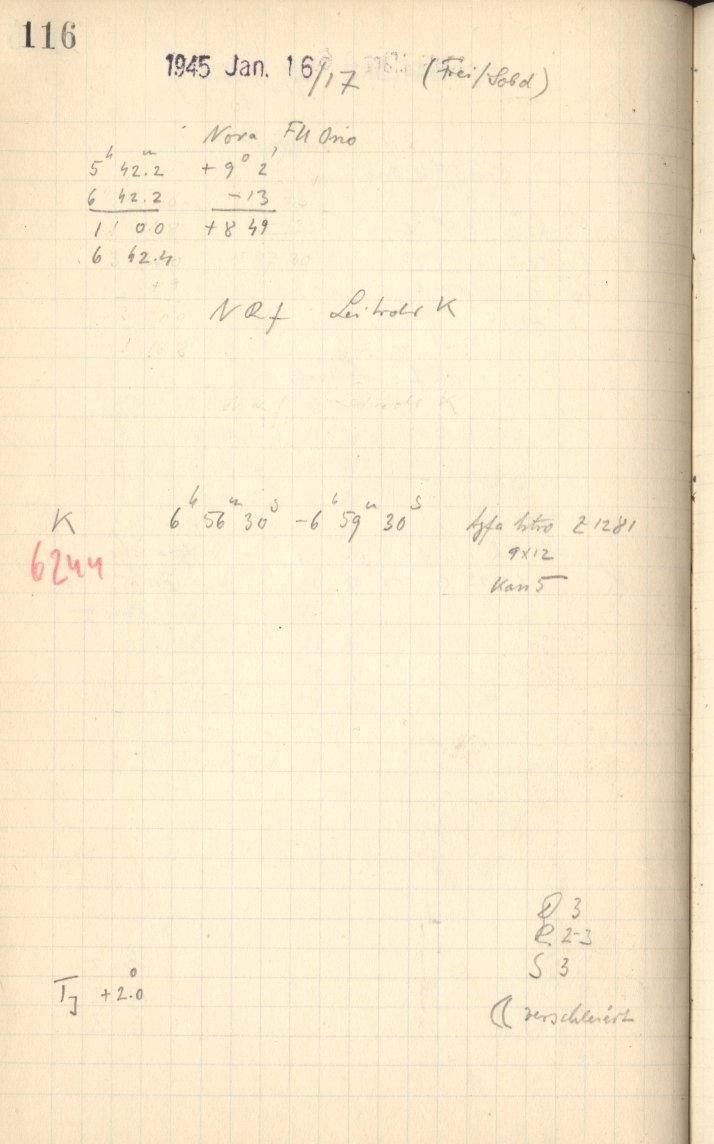 116
1945 Jan. 16/17 (Frei/Sobd)
Nova FU Orio
5ʰ 42.2ᵐ +9° 2'
6 42.2 -13
1 0.0 +8 49
6 42.4
Leitrohr K
K 6ʰ 56ᵐ 30ˢ - 6ʰ 59ᵐ 30ˢ Agfa Astro Z 1281
6244 9x12
Kass 5
3
2-3
S 3
+2.0°
verschleiert